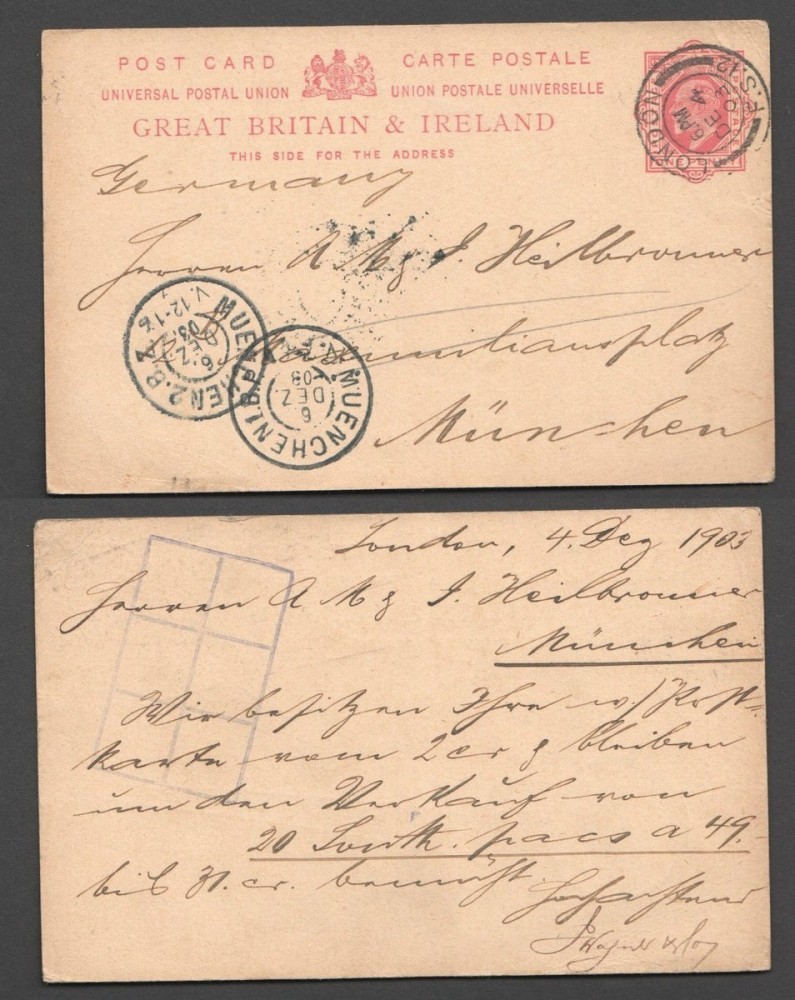 POST CARD CARTE POSTALE
UNIVERSAL POSTAL UNION UNION POSTALE UNIVERSELLE
GREAT BRITAIN & IRELAND
THIS SIDE FOR THE ADDRESS
LONDON F.S. 12
6 PM
DE 4
03
Germany
Herren A M & J. Heilbronner
Maximiliansplatz
München
MUENCHEN 2. B.Z.
6. DEZ. 03
V. 12-1
MUENCHEN 1. B.P.
6 DEZ. 03
London, 4. Dez 1903
Herren A M & J. Heilbronner
München
Wir besitzen Ihre w/ Post=
karte vom 2 cr & bleiben
um den Verkauf von
20 South. pacs a 49.-
bis 31. cr. bemüht
Hochachtend